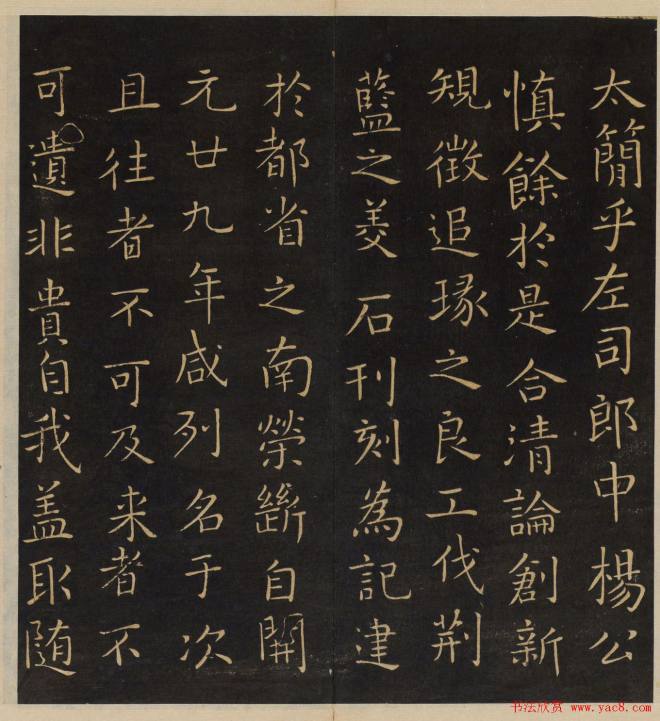 太簡乎左司郎中楊公
慎餘於是合清論創新
規徵追琢之良工伐荆
藍之美石刊刻為記建
於都省之南榮斷自開
元廿九年咸列名于次
且往者不可及来者不
可遺非貴自我盖取随
书法欣赏 www.yac8.com